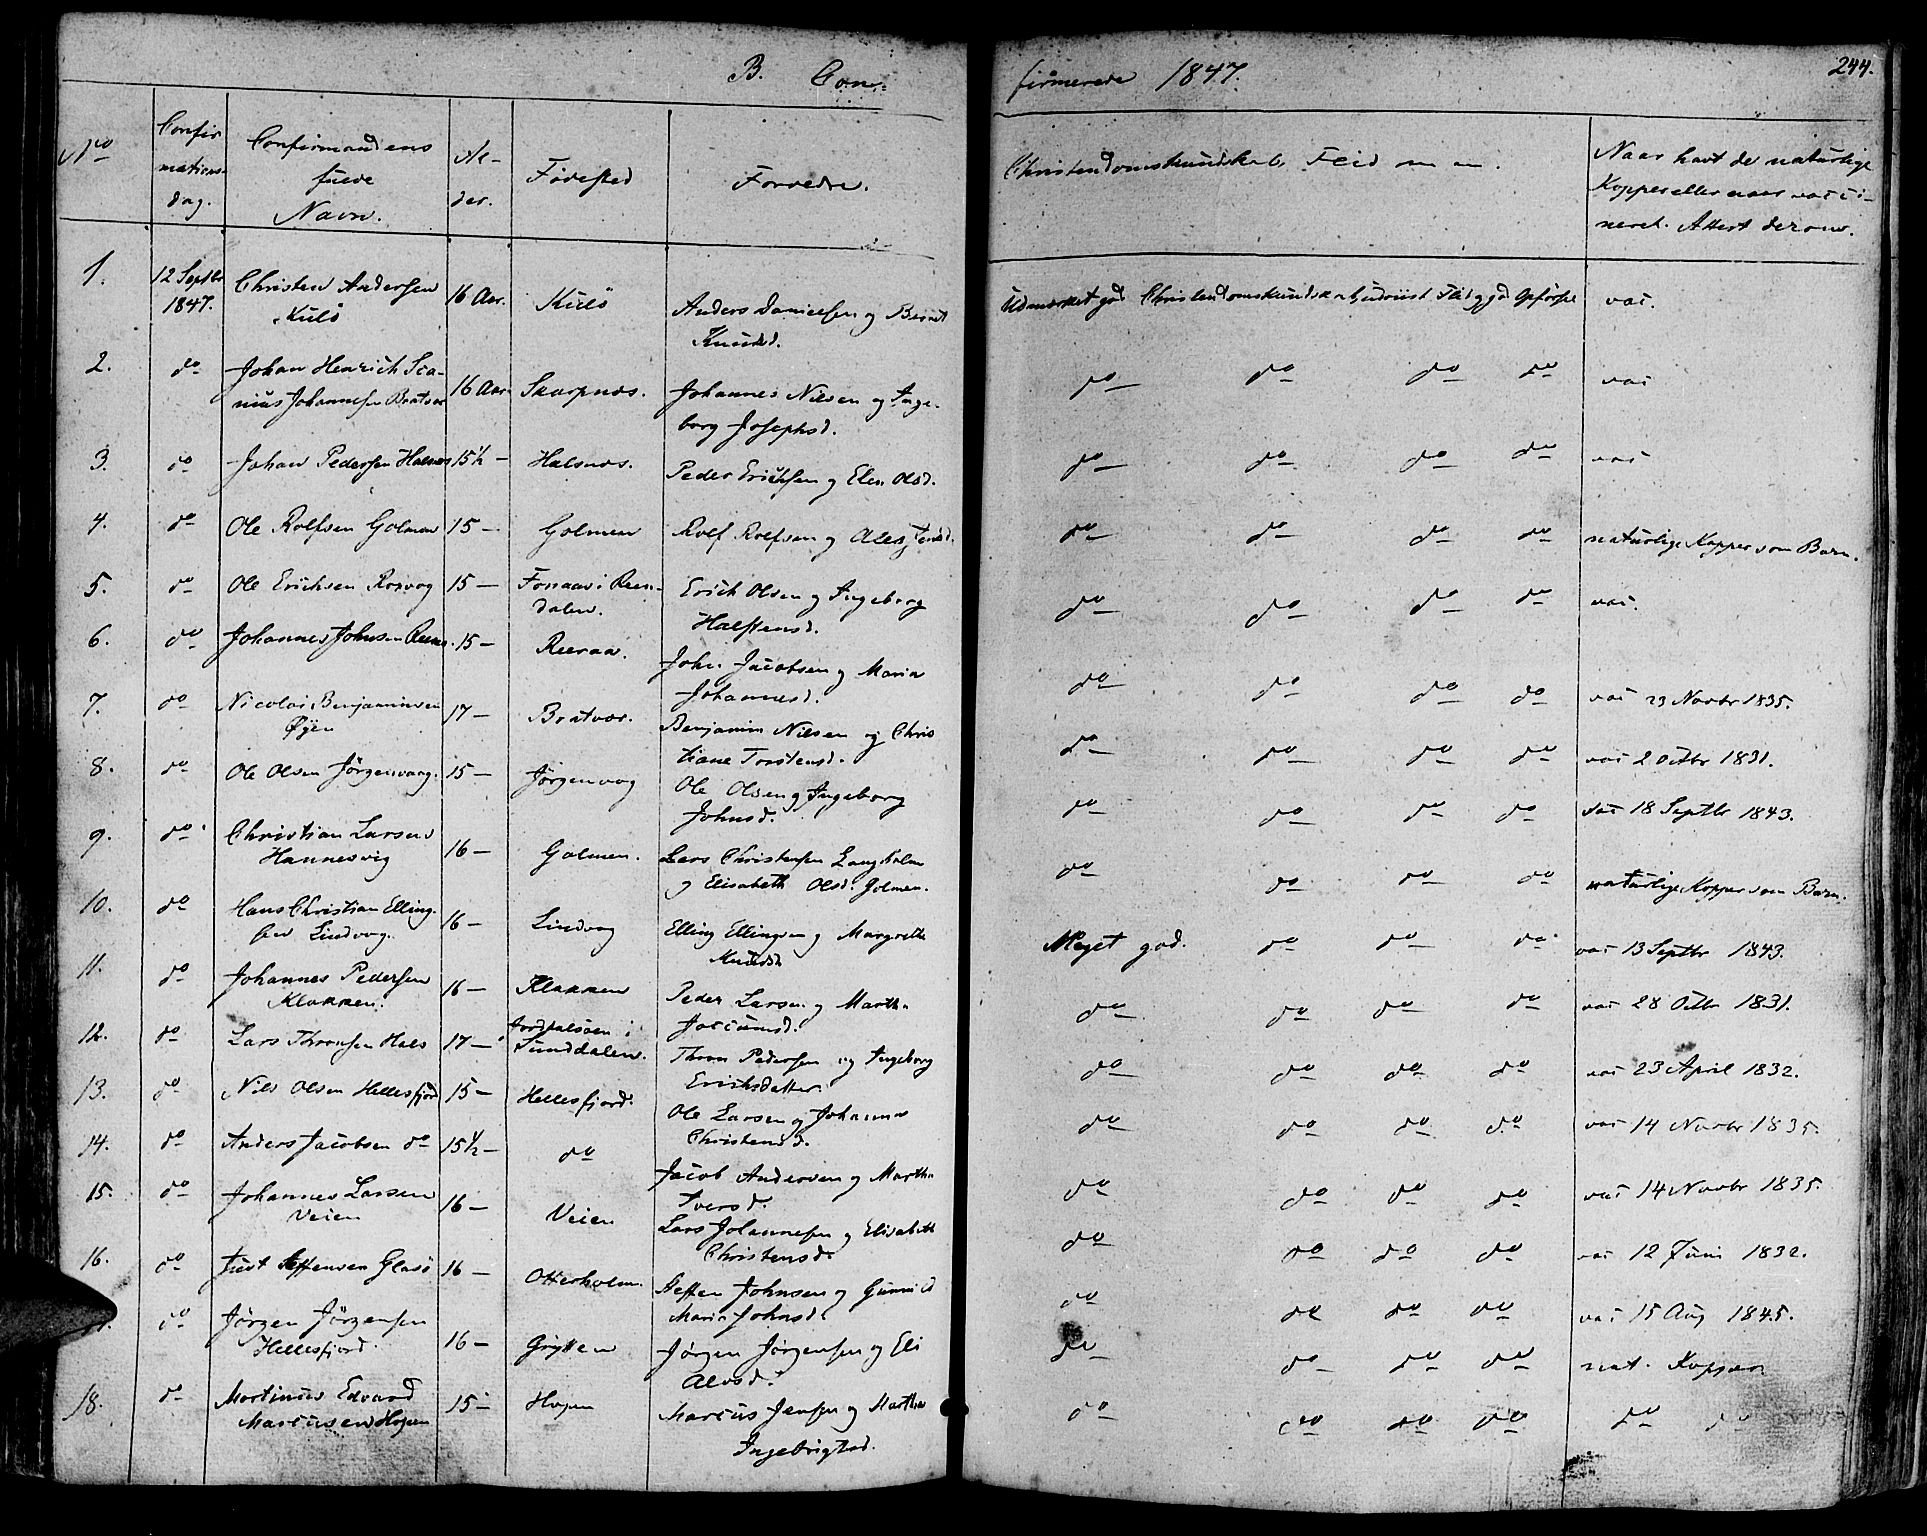 B. Con-
firmerede 1847.
244.
No
Confir
mations-
dag.
Confirmandens
fulde
Navn.
Al-
der.
Fødested
Forældre.
Christendomskundskab, Flid m m.
Naar havt de naturlige
Kopper eller naar vacci-
neret. Attest derom.
1. 12 Septbr Christen Andersen 16 Aar. Kulø Anders Danielsen og Beret Udmærket god Christendomskundsk. Flid og god Opførsel vac.
1847. Kulø Knudsd.
2. do Johan Henrich Sca- 16 Aar. Skarpnes. Johannes Nilsen og Inge- do do do do vac
nius Johannesen Bratvær borg Josephsd.
3. do Johan Pedersen Halsnes 15½ — Halsnes. Peder Erichsen og Elen Olsd. do do do do vac
4. do Ole Rolfsen Golmen 15 — Golmen Rolf Rolfsen og do do do do naturlige Kopper som Barn.
5. do Ole Erichsen Rosvog 15 — i Reen- Erich Olsen og Ingeborg do do do do vac.
dalen. Halstensd.
6. do Johannes Johnsen 15 — John Jacobsen og Maria do do do do vac 23 Novbr 1835.
Johannesd.
7. do Nicolai Benjaminsen 17 — Bratvær. Benjamin Nilsen og Chris do do do do vac 2 Octbr 1831.
Øyen tiane Torstensd.
8. do Ole Olsen Jørgenvaag. 15 — Jørgenvog Ole Olsen og Ingeborg do do do do vac 18 Septbr 1843.
Johnsd.
9. do Christian Larsen 16 — Golmen. Lars Christensen Langholm do do do do naturlige Kopper som Barn.
Hannesvig og Elisabeth Olsd. Golmen.
10. do Hans Christian Elling- 16 — Lindvog Elling Ellingsen og Margrethe Meget god. do do do vac 13 Septbr 1843.
sen Lindvog. Knudsd
11. do Johannes Pedersen 16 — Klakken Peder Larsen og Martha do do do do vac 28 Octbr 1831.
Klakken. Joccumsd.
12. do Lars Thronsen Hals 17 — Jordalsøen i Thron Pedersen og Ingeborg do do do do vac 23 April 1832.
Sunddalen. Erichsdatter.
13. do Nils Olsen Hellesfjord 15 — Hellesfjord. Ole Larsen og Johanna do do do do vac 14 Novbr 1835.
Christensd.
14. do Anders Jacobsen do 15½ — do Jacob Andersen og Martha do do do do vac 14 Novbr 1835.
Iversd.
15. do Johannes Larsen 16 — Veien Lars Johannesen og Elisabeth do do do do vac 12 Juni 1832.
Veien Christensd.
16. do Just Steffensen Glasø 16 — Otterholm. Steffen Johnsen og Gunnild do do do do vac 15 Aug 1845.
Maria Johnsd.
do Jørgen Jørgensen 16 — Grytten Jørgen Jørgensen og Eli do do do do nat. Kopper
Hellesfjord. Alvsd.
18. do Martinus Edvard 15 — Hogen Marcus Jensen og Martha do do do do do do
Marcusen Hogen Ingebrigtsd.